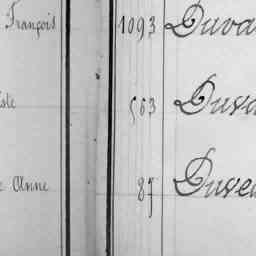 François 1093 Duva
ste 563 Duva
e Anne 87 Duve